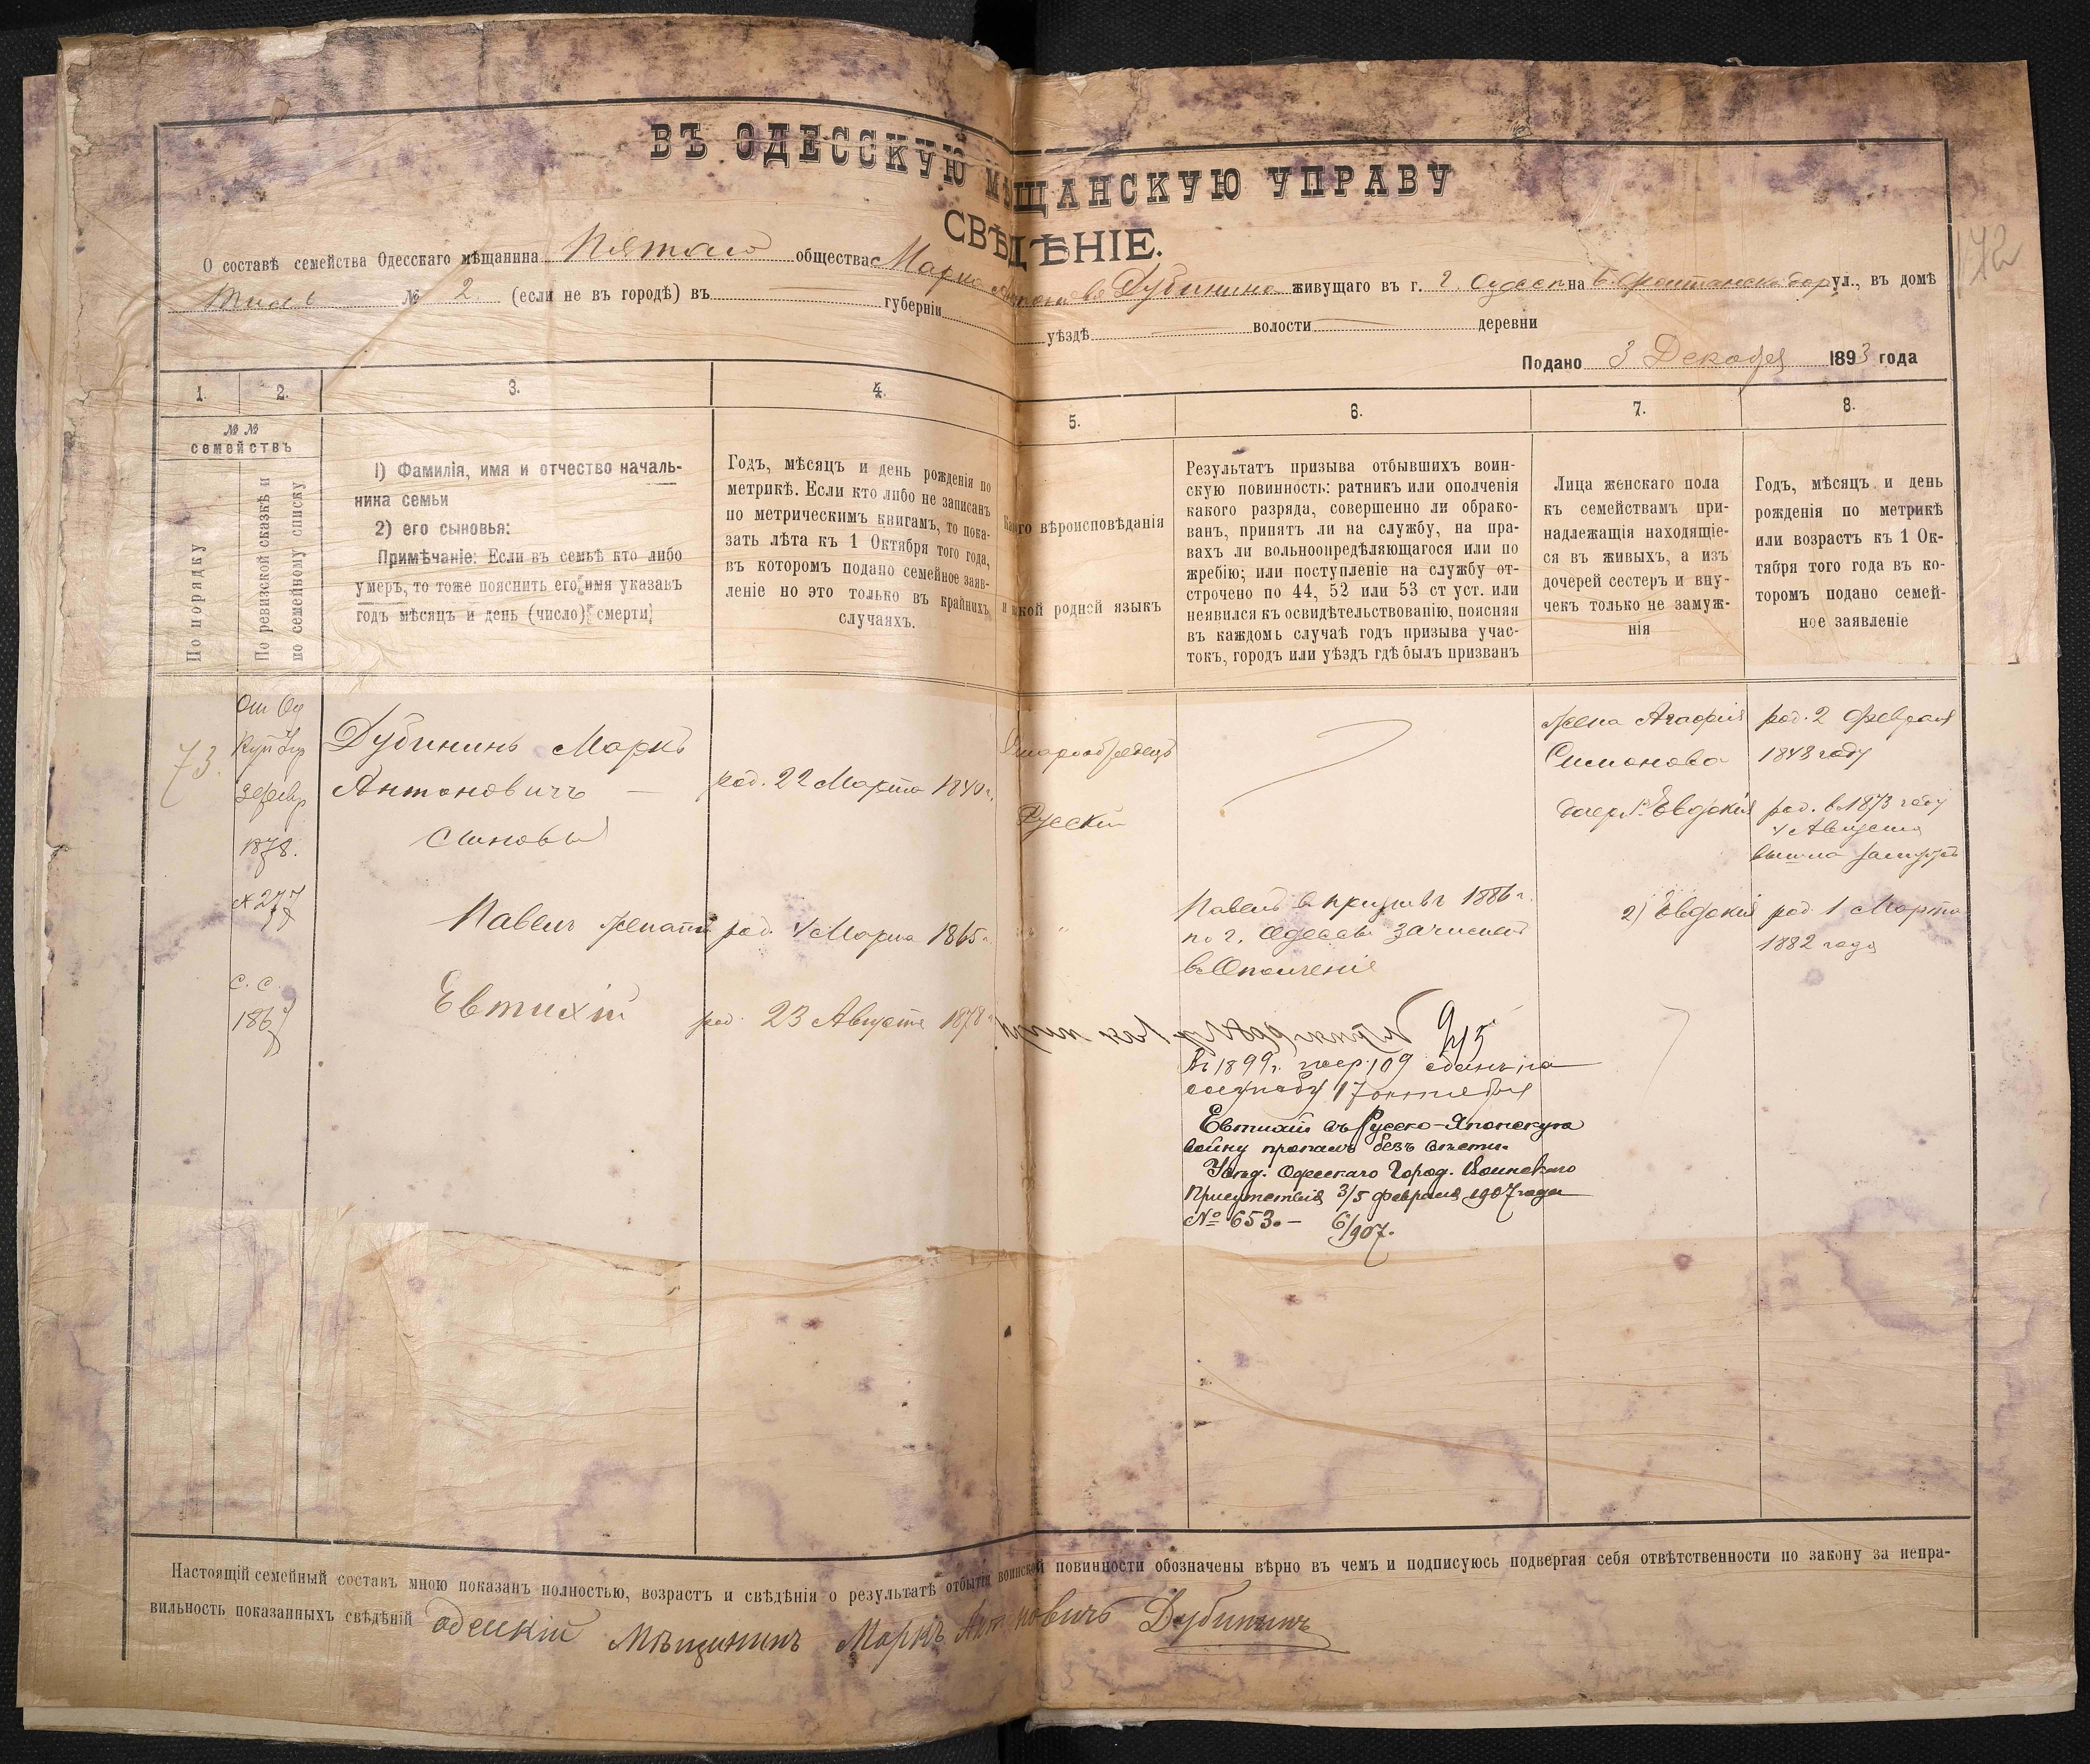 ВЪ ОДЕССКУЮ МѢЩАНСКУЮ УПРАВУ
СВѢДѢНІЕ.
172
О составѣ семейства Одесскаго мѣщанина Пятаго общества Марка Дубинина живущаго въ г. г. Одессѣ на Б. Фонтанск. дор ул., въ домѣ
№ 2. (если не въ городѣ) въ губерніи уѣздѣ волости деревни
Подано 3 Декабря 1893 года
1. 2. 3. 4. 5. 6. 7. 8.
№ №
семействъ
По порядку
По ревизской сказкѣ и
по семейному списку
1) Фамилія, имя и отчество началь-
ника семьи
2) его сыновья:
Примѣчаніе: Если въ семьѣ кто либо
умеръ, то тоже пояснить его имя указавъ
годъ мѣсяцъ и день (число) смерти
Годъ, мѣсяцъ и день рожденія по
метрикѣ. Если кто либо не записанъ
по метрическимъ книгамъ, то пока-
зать лѣта къ 1 Октября того года,
въ которомъ подано семейное заяв-
леніе но это только въ крайнихъ
случаяхъ.
Какого вѣроисповѣданія
и какой родной языкъ
Результатъ призыва отбывшихъ воин-
скую повинность: ратникъ или ополченія
какого разряда, совершенно ли обрако-
ванъ, принятъ ли на службу, на пра-
вахъ ли вольноопредѣляющагося или по
жребію; или поступленіе на службу от-
строчено по 44, 52 или 53 ст уст. или
неявился къ освидѣтельствованію, поясняя
въ каждомъ случаѣ годъ призыва учас-
токъ, городъ или уѣздъ гдѣ былъ призванъ
Лица женскаго пола
къ семействамъ при-
надлежащія находящіе-
ся въ живыхъ, а изъ
дочерей сестеръ и вну-
чекъ только не замуж-
нія
Годъ, мѣсяцъ и день
рожденія по метрикѣ
или возрастъ къ 1 Ок-
тября того года въ ко-
торомъ подано семей-
ное заявленіе
73.
1878.
№ 277
с. с.
186
Дубининъ Маркъ
Антоновичъ —
сыновья
Павелъ женатый
Евтихій
род. 22 Марта 1840 г.
род. 4 Марта 1865 г.
род. 23 Августа 1878 г.
Старообрядецъ
Русскій
Павелъ въ призывъ 1886 г.
по г. Одессѣ зачисленъ
въ Ополченіе
Въ 1899 г. жер. 109 сданъ на
службу 17 октября
Евтихій въ Русско-Японскую
войну пропалъ безъ вѣсти.
Увѣд. Одесскаго Город. Воинскаго
Присутствія 3/5 февраля 1907 года
№ 653. — 6/907.
жена Агафія
Симонова
дочер. 1. Евдокія
2) Евдокія
род. 2 февраля
1843 году
род. в 1873 году
4 Августа
вышла замужъ
род. 1 Марта
1882 года
Настоящій семейный составъ мною показанъ полностью, возрастъ и свѣдѣнія о результатѣ отбытія воинской повинности обозначены вѣрно въ чемъ и подписуюсь подвергая себя отвѣтственности по закону за непра-
вильность показанныхъ свѣдѣній одескій Мѣщининъ Маркъ Антоновичъ Дубининъ